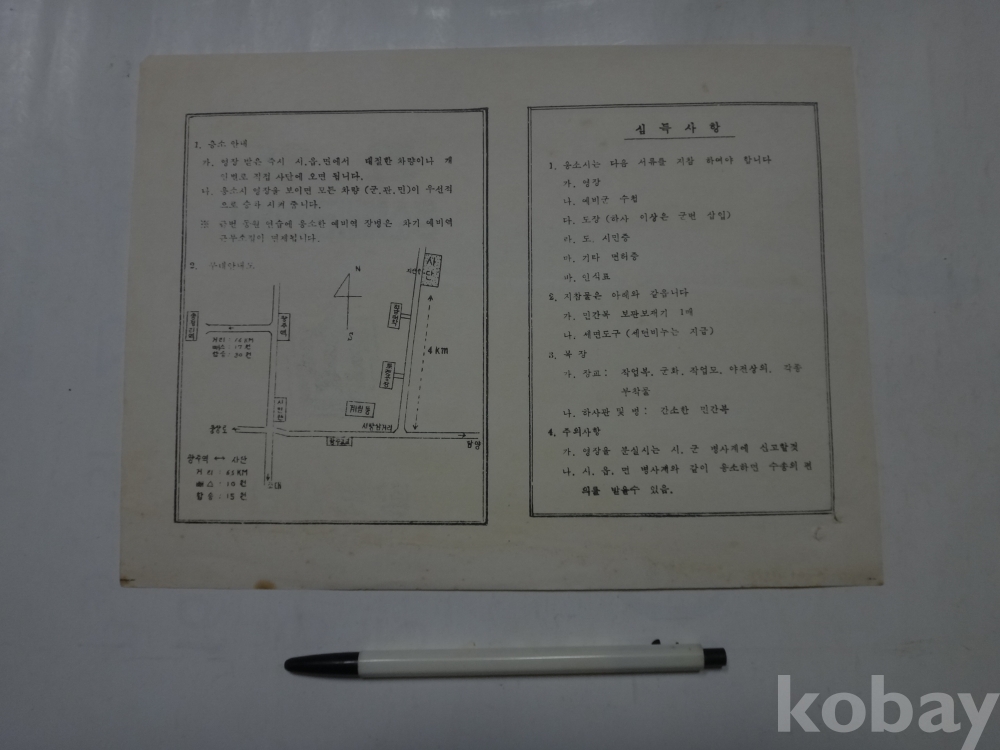 1. 응소 안내
가. 영장 받은 즉시 시.읍.면에서 대절한 차량이나 개
인별로 직접 사단에 오면 됩니다.
나. 응소시 영장을 보이면 모든 차량 (군.관.민)이 우선적
으로 승차 시켜 줍니다.
※ 금번 동원 연습에 응소한 예비역 장병은 차기 예비역
근무소집이 면제됩니다.
2. 부대안내도
N
S
사단
4 km
거리 : 14 KM
뻐스 : 17 원
합승 : 30 원
광주역
시민관
계림동
서방삼거리
담양
광주역 ↔ 사단
거리 : 4.5 KM
뻐스 : 10 원
합승 : 15 원
십득사항
1. 응소시는 다음 서류를 지참 하여야 합니다
가. 영장
나. 예비군 수첩
다. 도장 (하사 이상은 군번 삽입)
라. 도. 시민증
마. 기타 면허증
바. 인식표
2. 지참물은 아래와 같읍니다
가. 민간복 보관보재기 1매
나. 세면도구 (세면비누는 지급)
3. 복장
가. 장교: 작업복, 군화, 작업모, 야전상의, 각종
부착물
나. 하사관 및 병: 간소한 민간복
4. 주의사항
가. 영장을 분실시는 시. 군 병사계에 신고할것
나. 시. 읍. 면 병사계와 같이 응소하면 수송의 편
의를 받을수 있음.
kobay